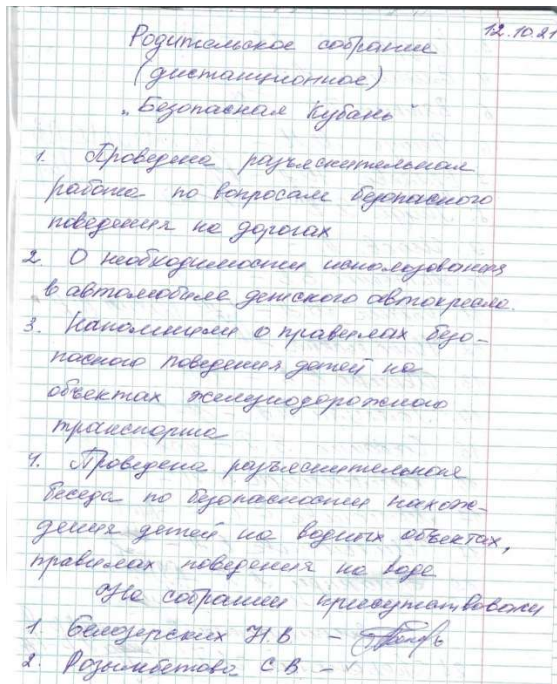 12.10.21
Родительское собрание
(дистанционное)
„Безопасная Кубань"
1. Проведена разъяснительная
работа по вопросам безопасного
поведения на дорогах
2. О необходимости использования
в автомобиле детского автокресла.
3. Напомнили о правилах безо-
пасного поведения детей на
объектах железнодорожного
транспорта
4. Проведена разъяснительная
беседа по безопасности нахож-
дения детей на водных объектах,
правилах поведения на воде
На собрании присутствовали
1. Белозерских Н.В. –
2. Розымбетова С.В. –